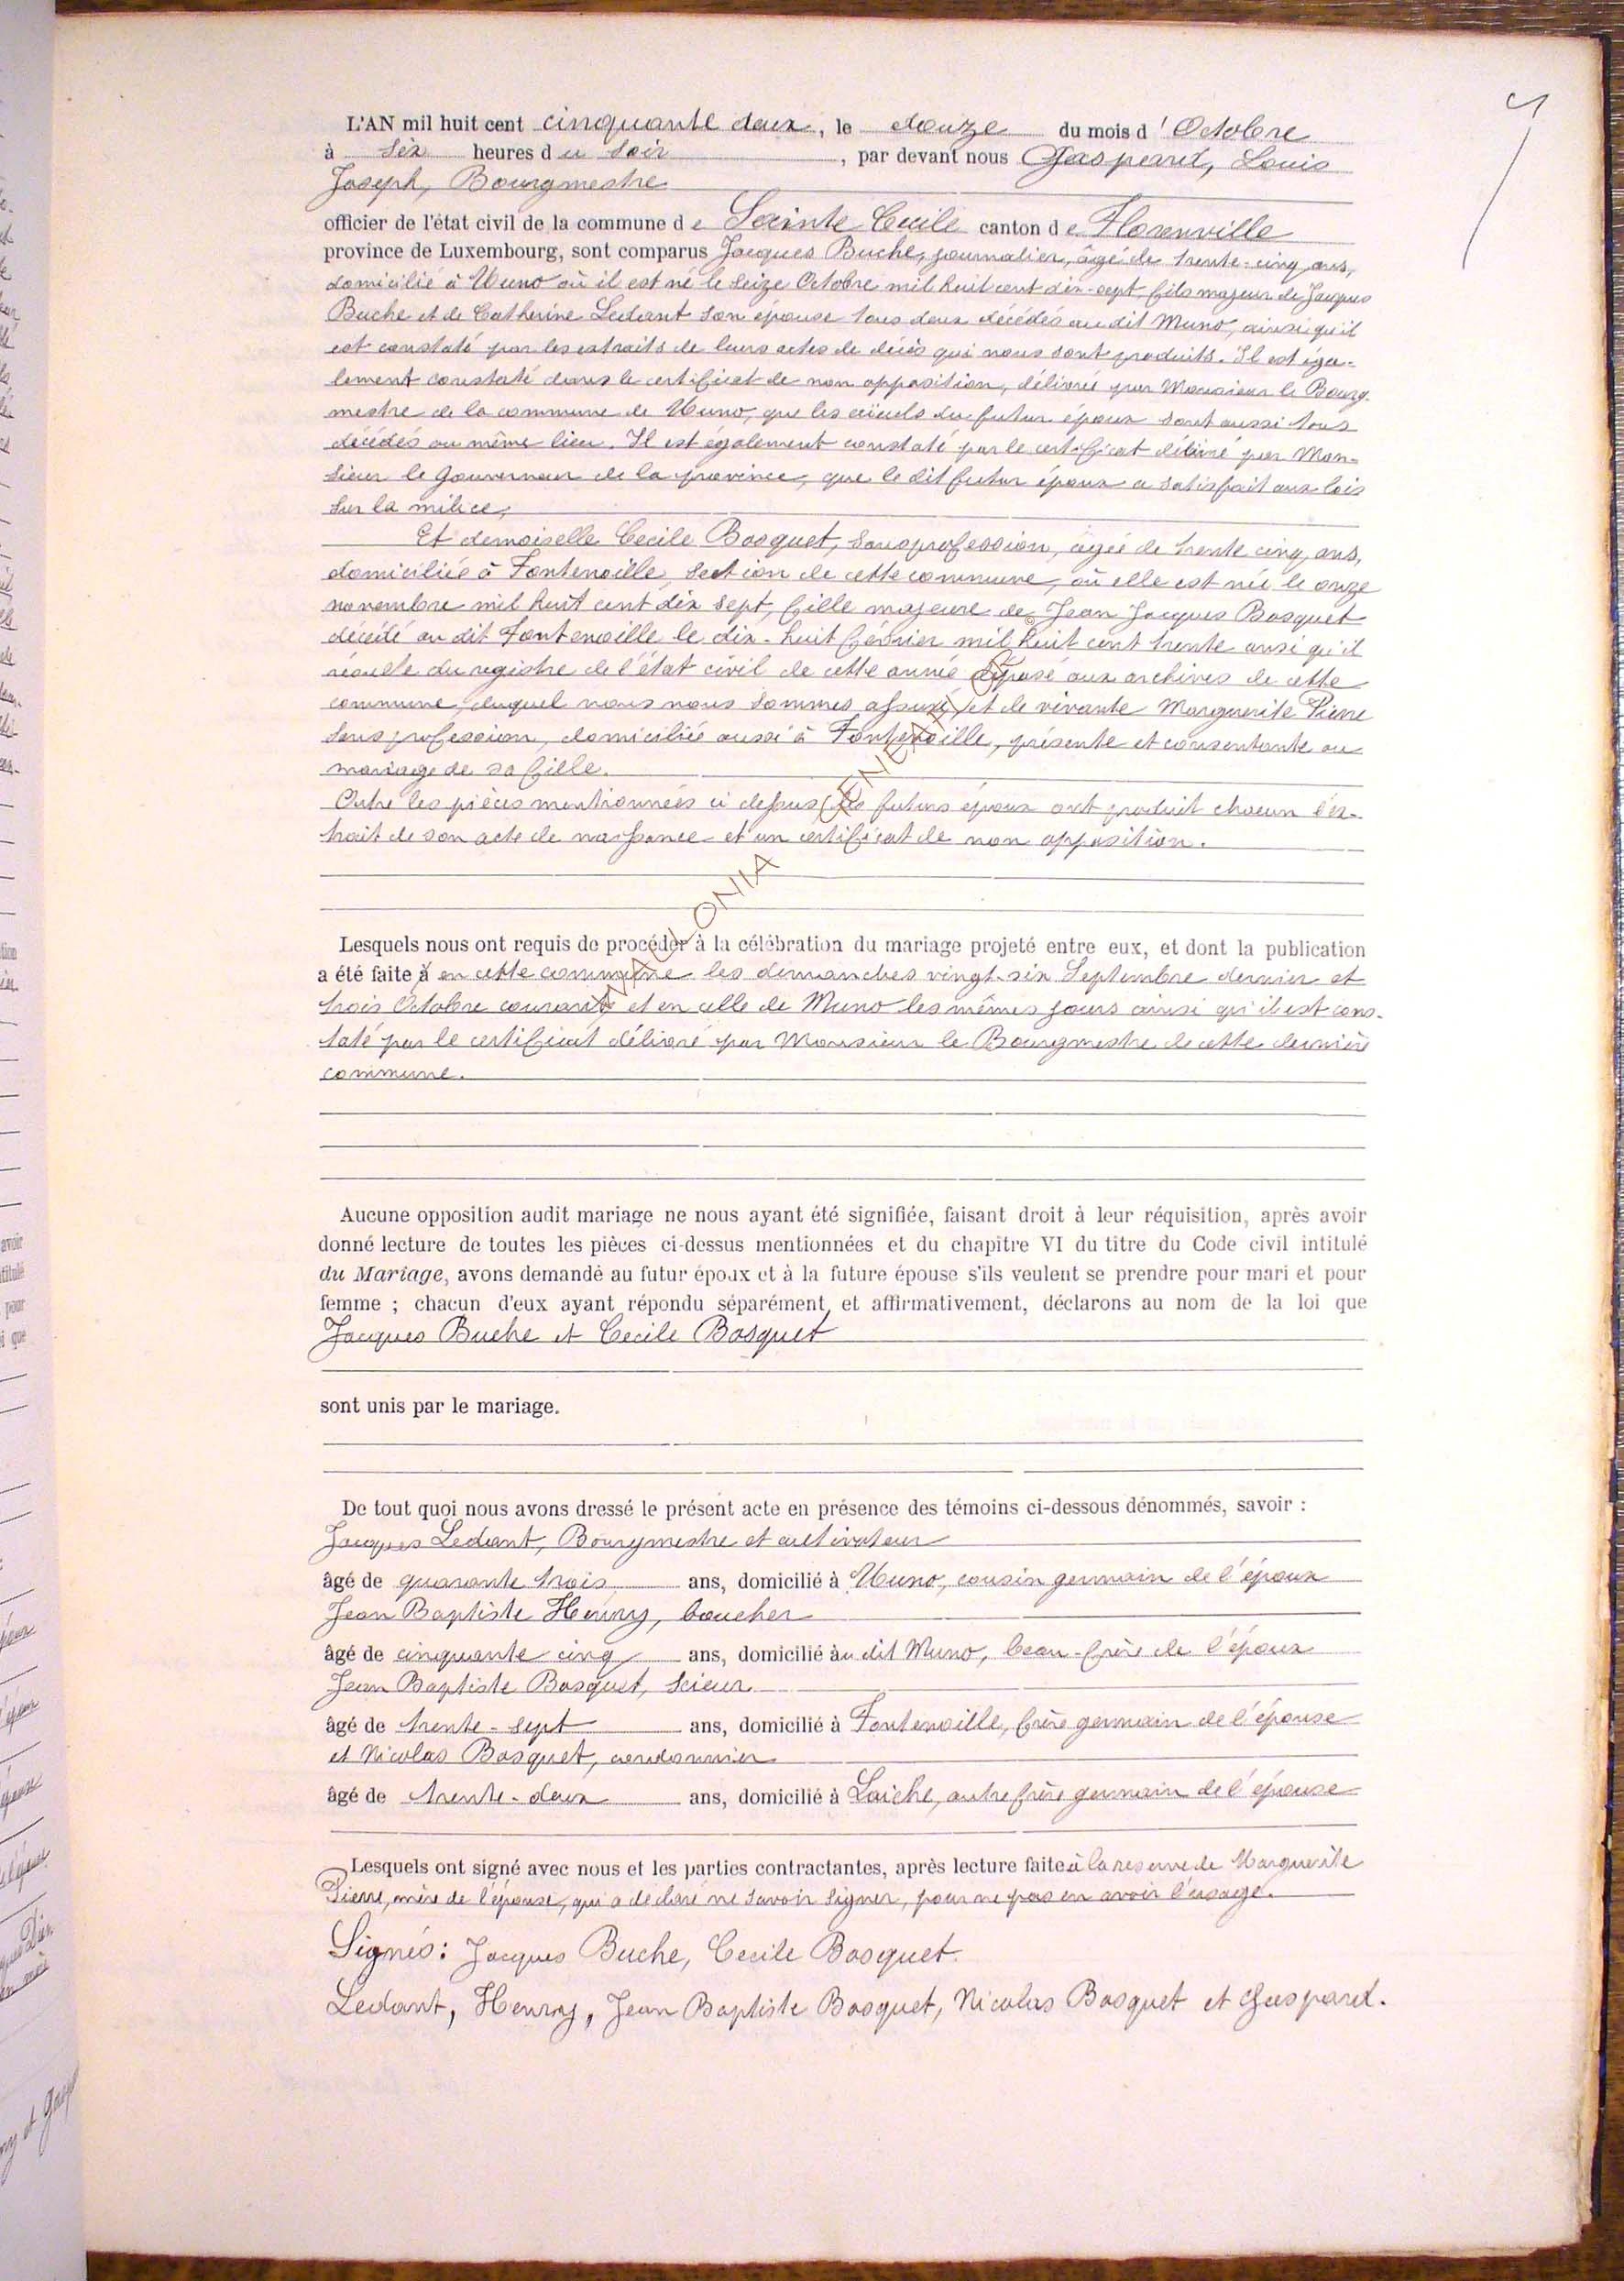 L'AN mil huit cent cinquante deux, le douze du mois d'Octobre
à six heures du soir, par devant nous Gaspard, Louis
Joseph, Bourgmestre
officier de l'état civil de la commune de Sainte Cecile canton de Florenville
province de Luxembourg, sont comparus Jacques Buche, journalier, âgé de trente-cinq ans,
domicilié à Muno où il est né le seize Octobre mil huit cent dix-sept, fils majeur de Jacques
Buche et de Catherine Ledant son épouse tous deux décédés au dit Muno, ainsi qu'il
est constaté par les extraits de leurs actes de décès qui nous sont produits. Il est éga-
lement constaté dans le certificat de non opposition, délivré par Monsieur le Bourg-
mestre de la commune de Muno, que les aïeuls du futur époux sont aussi tous
décédés au même lieu. Il est également constaté par le certificat délivré par Mon-
sieur le Gouverneur de la province, que le dit futur époux a satisfait aux lois
sur la milice,
Et demoiselle Cecile Bosquet, sans profession, âgée de trente cinq ans,
domiciliée à Fontenoille, section de cette commune, où elle est née le onze
novembre mil huit cent dix sept, fille majeure de Jean Jacques Bosquet
décédé au dit Fontenoille le dix-huit février mil huit cent trente ainsi qu'il
résulte du registre de l'état civil de cette année déposé aux archives de cette
commune, duquel nous nous sommes assuré, et de vivante Marguerite Pierre
sans profession, domiciliée aussi à Fontenoille, présente et consentante au
mariage de sa fille.
Outre les pièces mentionnées ci dessus, les futurs époux ont produit chacun l'ex-
trait de son acte de naissance et un certificat de non opposition.
Lesquels nous ont requis de procéder à la célébration du mariage projeté entre eux, et dont la publication
a été faite à en cette commune les dimanches vingt-six Septembre dernier et
trois Octobre courant, et en celle de Muno les mêmes jours ainsi qu'il est cons-
taté par le certificat délivré par Monsieur le Bourgmestre de cette dernière
commune.
WALLONIA GENEALOGY ©
Aucune opposition audit mariage ne nous ayant été signifiée, faisant droit à leur réquisition, après avoir
donné lecture de toutes les pièces ci-dessus mentionnées et du chapitre VI du titre du Code civil intitulé
du Mariage, avons demandé au futur époux et à la future épouse s'ils veulent se prendre pour mari et pour
femme ; chacun d'eux ayant répondu séparément et affirmativement, déclarons au nom de la loi que
Jacques Buche et Cecile Bosquet
sont unis par le mariage.
De tout quoi nous avons dressé le présent acte en présence des témoins ci-dessous dénommés, savoir :
Jacques Ledant, Bourgmestre et cultivateur
âgé de quarante trois ans, domicilié à Muno, cousin germain de l'époux
Jean Baptiste Henry, boucher
âgé de cinquante cinq ans, domicilié au dit Muno, beau-frère de l'époux
Jean Baptiste Bosquet, scieur
âgé de trente-sept ans, domicilié à Fontenoille, frère germain de l'épouse
et Nicolas Bosquet, cordonnier
âgé de trente-deux ans, domicilié à Laiche, autre frère germain de l'épouse
Lesquels ont signé avec nous et les parties contractantes, après lecture faite à la reserve de Marguerite
Pierre, mère de l'épouse, qui a declaré ne savoir signer, pour ne pas en avoir l'usage.
Signés : Jacques Buche, Cecile Bosquet.
Ledant, Henry, Jean Baptiste Bosquet, Nicolas Bosquet et Gaspard.